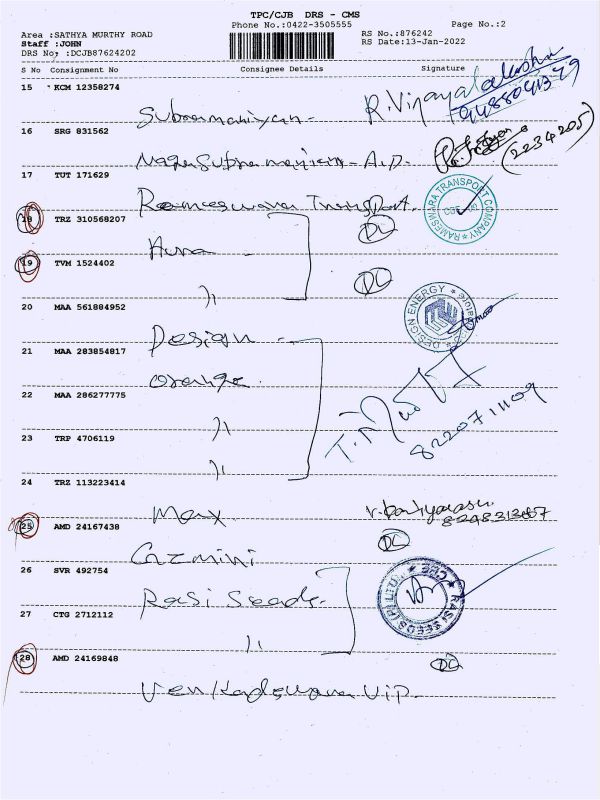 TPC/CJB DRS - CMS
Phone No.:0422-3505555
Page No.:2
Area :SATHYA MURTHY ROAD
RS No.:876242
Staff :JOHN
RS Date:13-Jan-2022
DRS No. :DCJB87624202
S No Consignment No Consignee Details Signature
15 KCM 12358274
Subramaniyan
R. Vijayalakshmi
16 SRG 831562
(2234205)
17 TUT 171629
Rameeswara Transport.
RAMESWARA TRANSPORT COMPANY
18 TRZ 310568207
DC
19 TVM 1524402
DC
20 MAA 561884952
Design
DESIGN ENERGY
21 MAA 283854817
orange
22 MAA 286277775
8220711109
23 TRP 4706119
24 TRZ 113223414
Max
25 AMD 24167438
DC
Gazmini
26 SVR 492754
Rasi Seeds
RASI SEEDS (P) LTD
27 CTG 2712112
28 AMD 24169848
DC